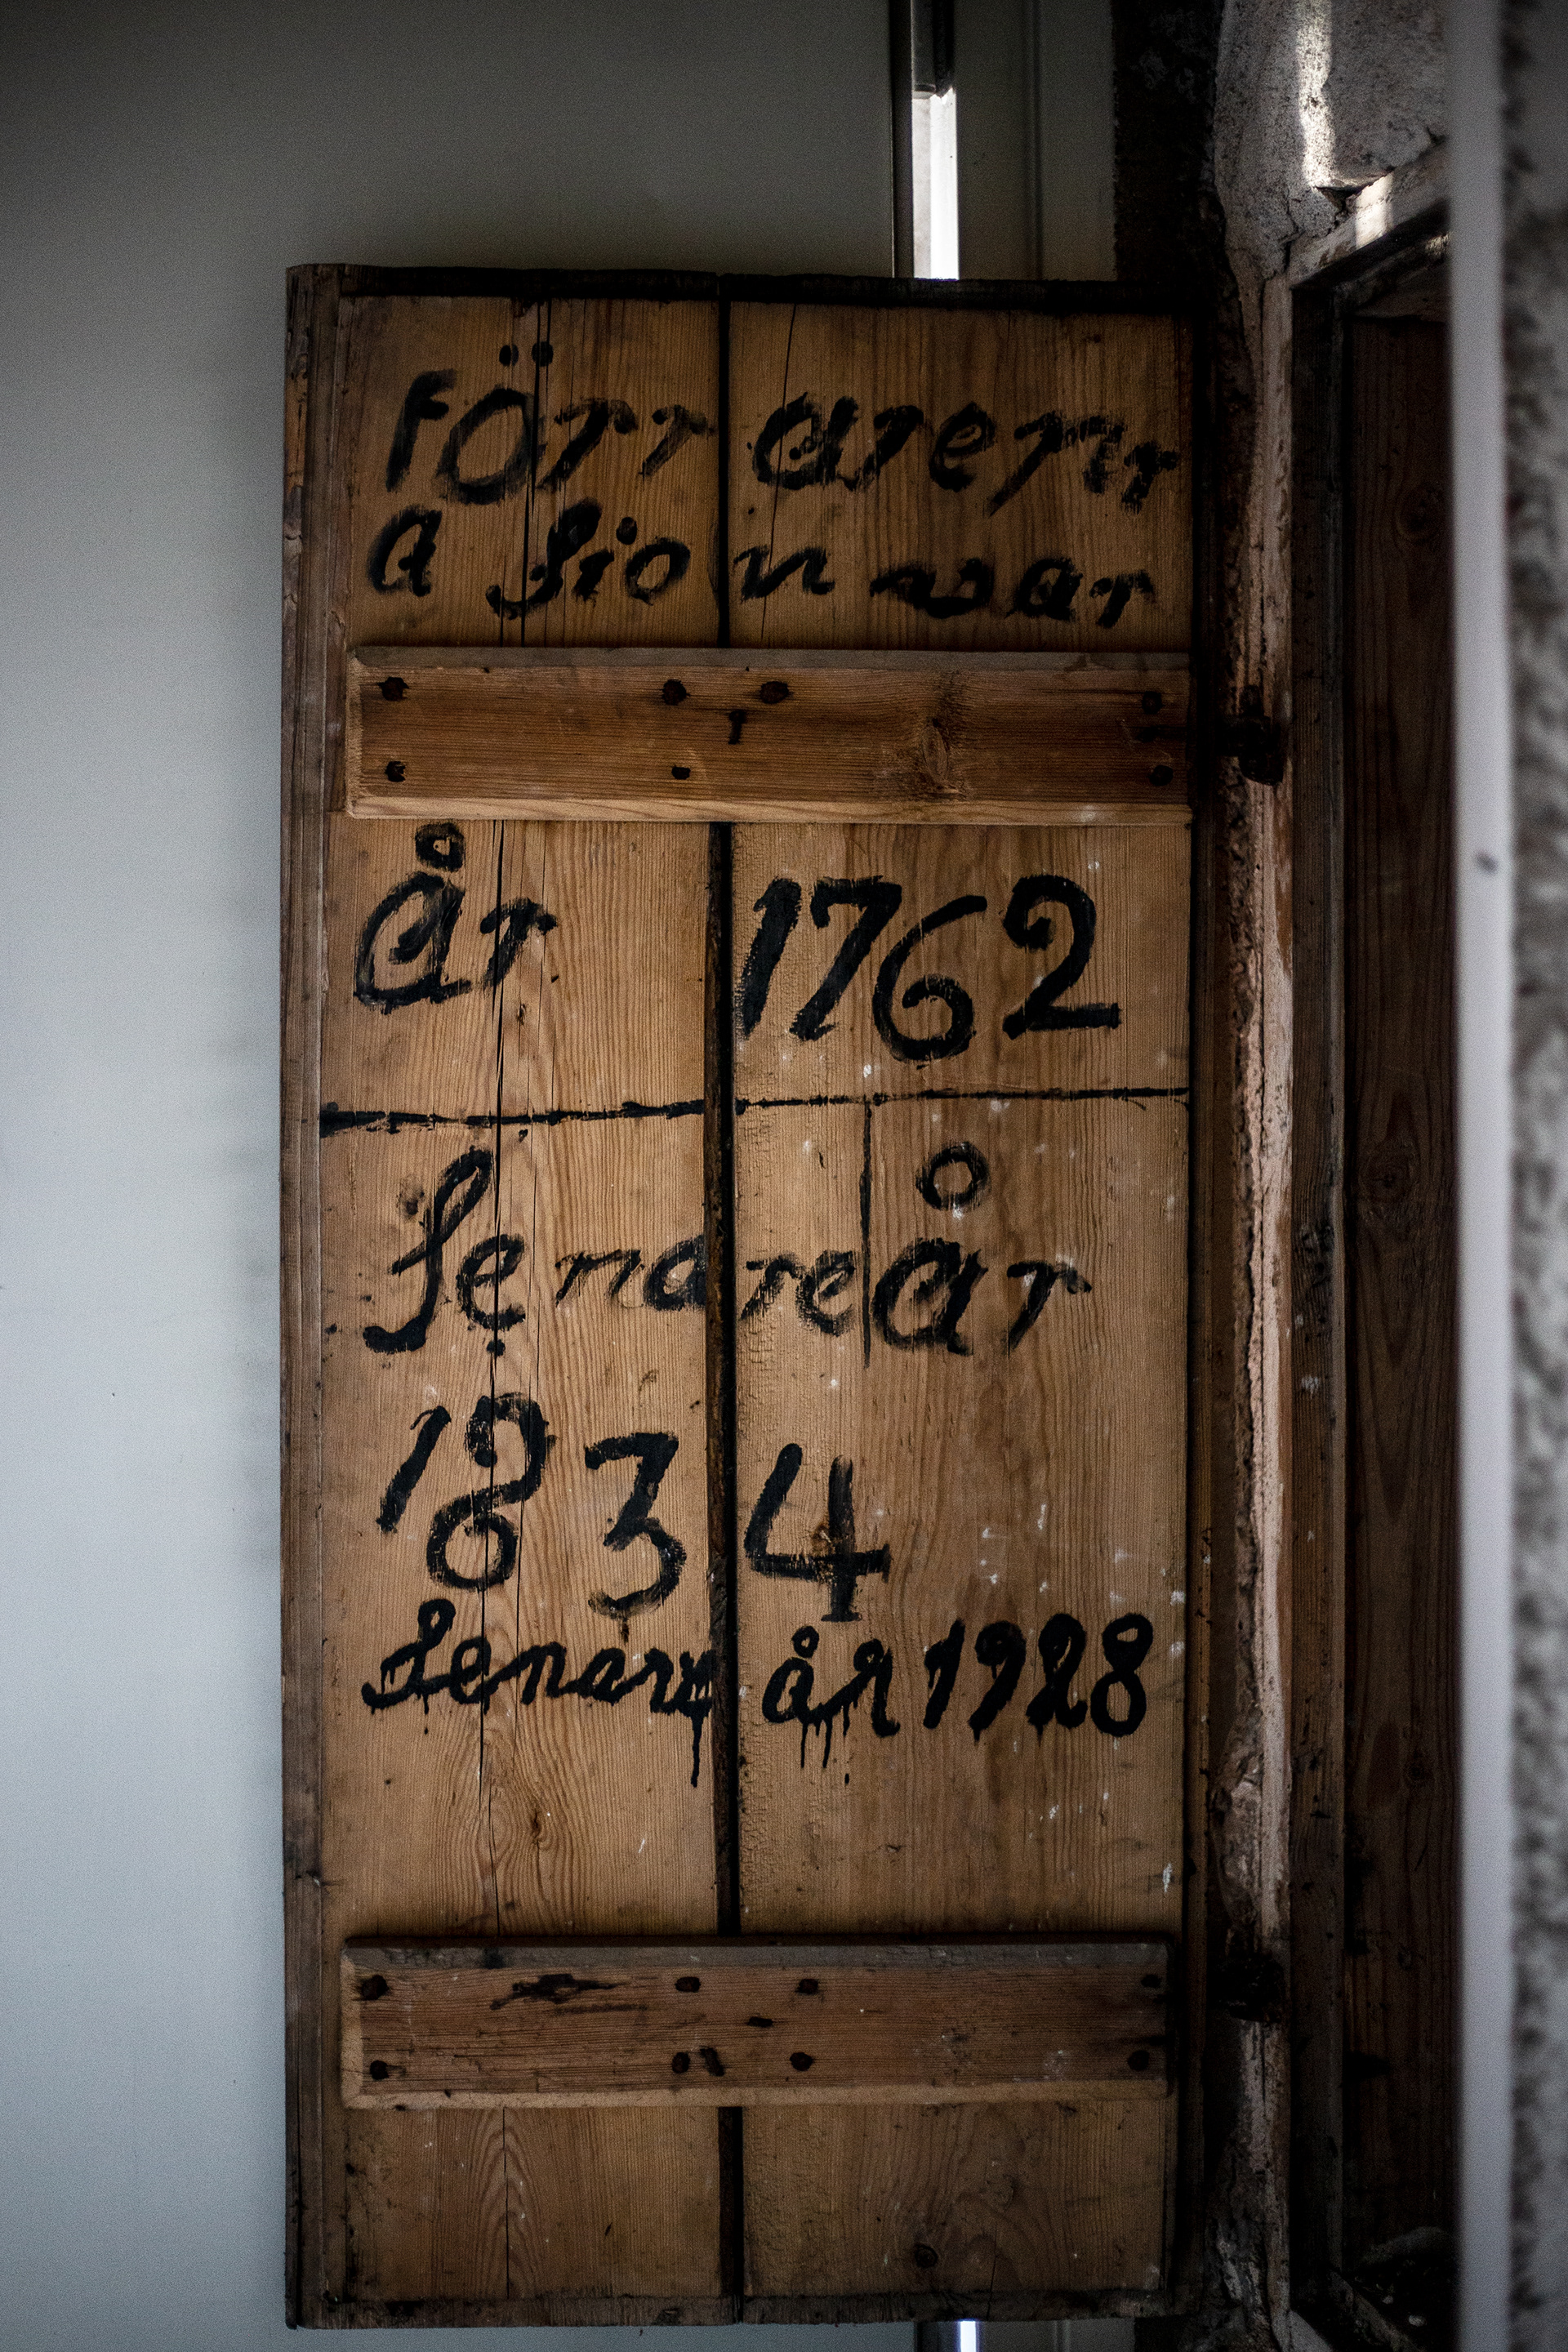 Förr arenn
a Sion war
År 1762
Senare år
1834
Senare år 1928